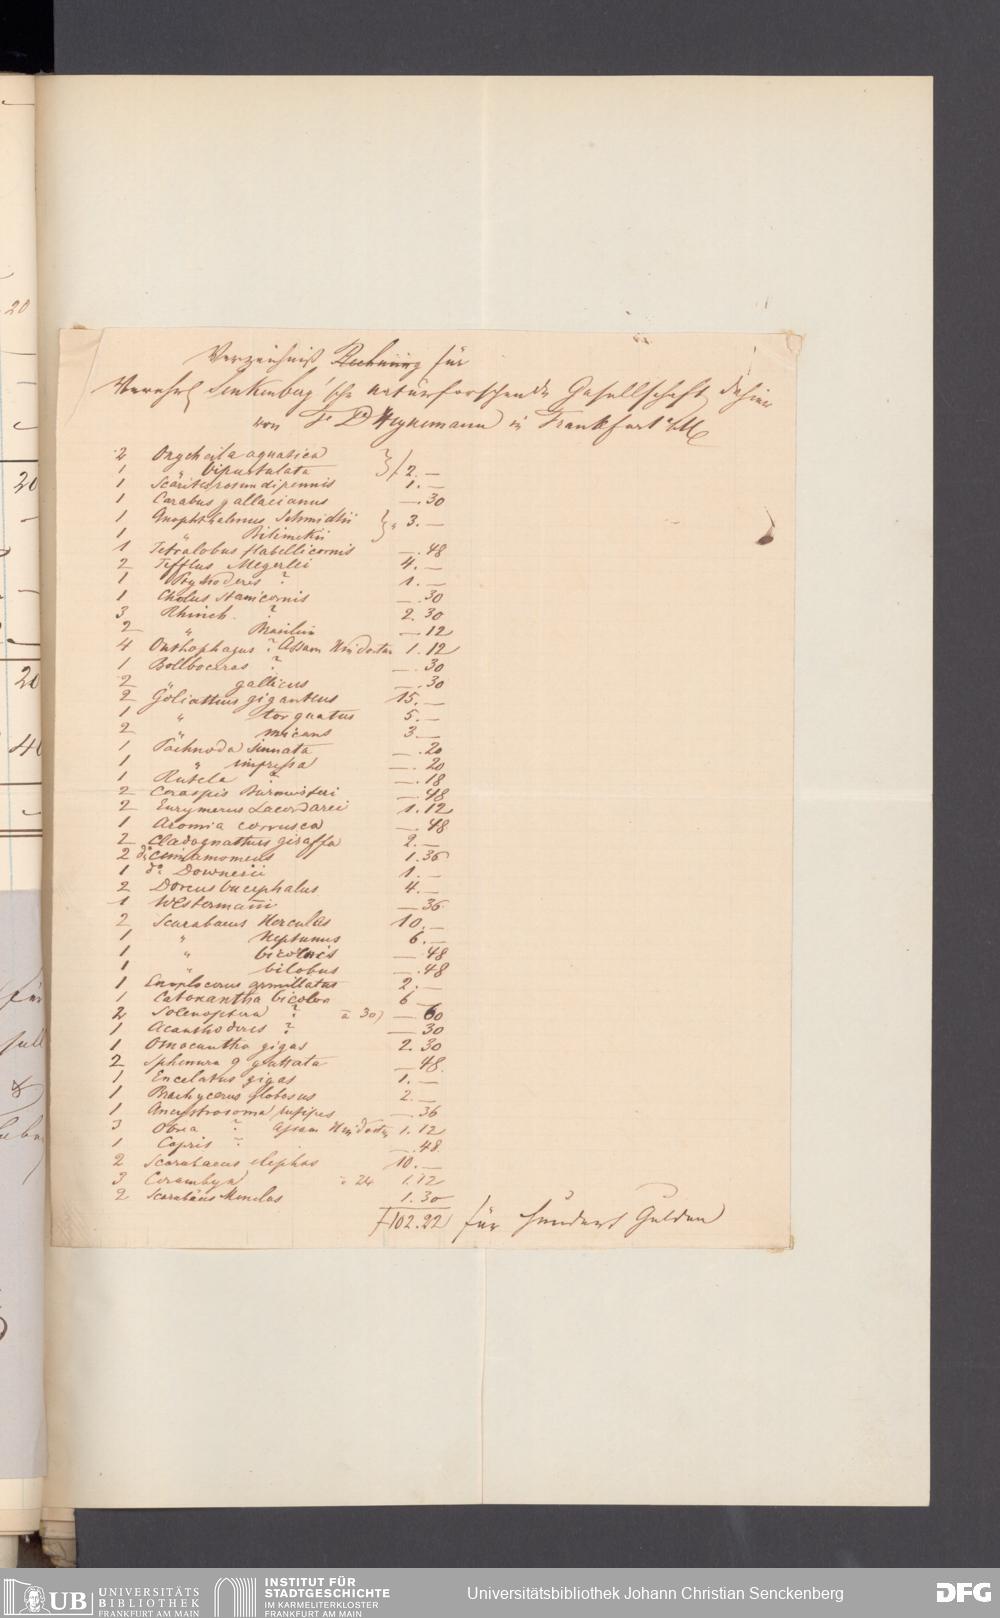 Verzeichniß Rechnung für
Verehrl Senkenberg'sche naturforschende Gesellschaft dahier
von F. D Heynemann in Frankfurt a/M
2 Oxycheila aquatica
1 " bipustulata } f 2. —
1 Scarites rotundipennis 1. —
1 Carabus gallacianus —. 30
1 Anophthalmus Schmidtii
1 " Bilimekii } " 3. —
1 Tetralobus flabellicornis —. 48
2 Tefflus Megerlei 4. —
1 ? 1. —
1 Cholus —. 30
3 Rhinch. ? 2. 30
2 " Brasilien — 12
4 Onthophagus ? Assam Hindostan 1. 12
1 Bolboceras ? —. 30
2 " gallicus —. 30
2 Goliathus giganteus 15. —
1 " torquatus 5. —
2 " micans 3 —
1 Pachnoda sinuata —. 20
1 " impressa —. 20
1 Rutela ? —. 18
2 Ceraspis Burmeisteri —. 48
2 Eurymerus Lacordairei 1. 12
1 Aromia corrusca —. 48
2 Cladognathus giraffa 2. —
2 do cinnamomeus 1. 36
1 do Downesii 1. —
2 Dorcus bucephalus 4. —
1 Westermanni — 36
2 Scarabaeus Hercules 10. —
1 " Neptunus 6. —
1 " —. 48
1 " bilobus —. 48
1 Enoplocerus armillatus 2. —
1 Catoxantha bicolor 6 —
2 Solenoptera ? a 30) — 60
1 Acanthoderes ? — 30
1 Omacantha gigas 2. 30
2 Sphenura 9 guttata — 48.
1 Encelatus gigas 1. —
1 Brachycerus globosus 2. —
1 Ancistrosoma rufipes —. 36
3 Obrea ? Assam Hindostan 1. 12
1 Copris ? —. 48
2 Scarabaeus elephas 10. —
3 Cerambyx a 24 1. 12
2 Scarabäus Menelas 1. 30
f 102. 22 für hundert Gulden
20
20
20
40
für
UB UNIVERSITÄTS
BIBLIOTHEK
FRANKFURT AM MAIN
INSTITUT FÜR
STADTGESCHICHTE
IM KARMELITERKLOSTER
FRANKFURT AM MAIN
Universitätsbibliothek Johann Christian Senckenberg
DFG